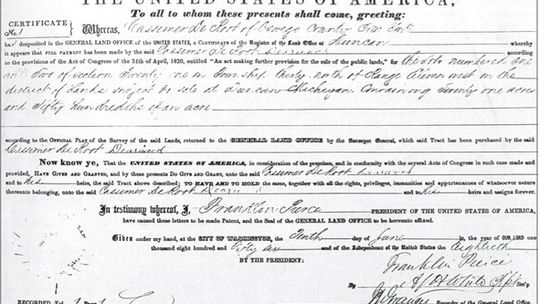 THE UNITED STATES OF AMERICA,
To all to whom these presents shall come, greeting:
CERTIFICATE
No. 1
Whereas, Casimer De Root of County
has deposited in the GENERAL LAND OFFICE of the UNITED STATES, a Certificate of the Register of the Land Office at Duncan whereby
it appears that FULL PAYMENT has been made by the said Casimer De Root Deceased according
to the provisions of the Act of Congress of the 24th of April, 1820, entitled "An act making further provision for the sale of the public lands," for the lots numbered one
and two of section twenty one in Township thirty north of Range west in the
district of Lands subject to sale at Duncan Michigan Containing seventy one acres
and fifty hundredths of an acre
according to the OFFICIAL PLAT of the Survey of the said Lands, returned to the GENERAL LAND OFFICE by the Surveyor General, which said Tract has been purchased by the said
Casimer De Root Deceased
Now know ye, That the UNITED STATES OF AMERICA, in consideration of the premises, and in conformity with the several Acts of Congress in such case made and
provided, HAVE GIVEN AND GRANTED, and by these presents DO GIVE AND GRANT, unto the said Casimer De Root Deceased
and to his heirs, the said Tract above described; TO HAVE AND TO HOLD the same, together with all the rights, privileges, immunities and appurtenances of whatsoever nature
thereunto belonging, unto the said Casimer De Root and to his heirs and assigns forever.
In testimony whereof, I, Franklin Pierce PRESIDENT OF THE UNITED STATES OF AMERICA,
have caused these letters to be made Patent, and the Seal of the GENERAL LAND OFFICE to be hereunto affixed.
Given under my hand, at the CITY OF WASHINGTON, the Tenth day of June in the year of OUR LORD one
thousand eight hundred and Fifty six and of the Independence of the United States the eightieth
BY THE PRESIDENT: Franklin Pierce
By
RECORDED Vol. 1